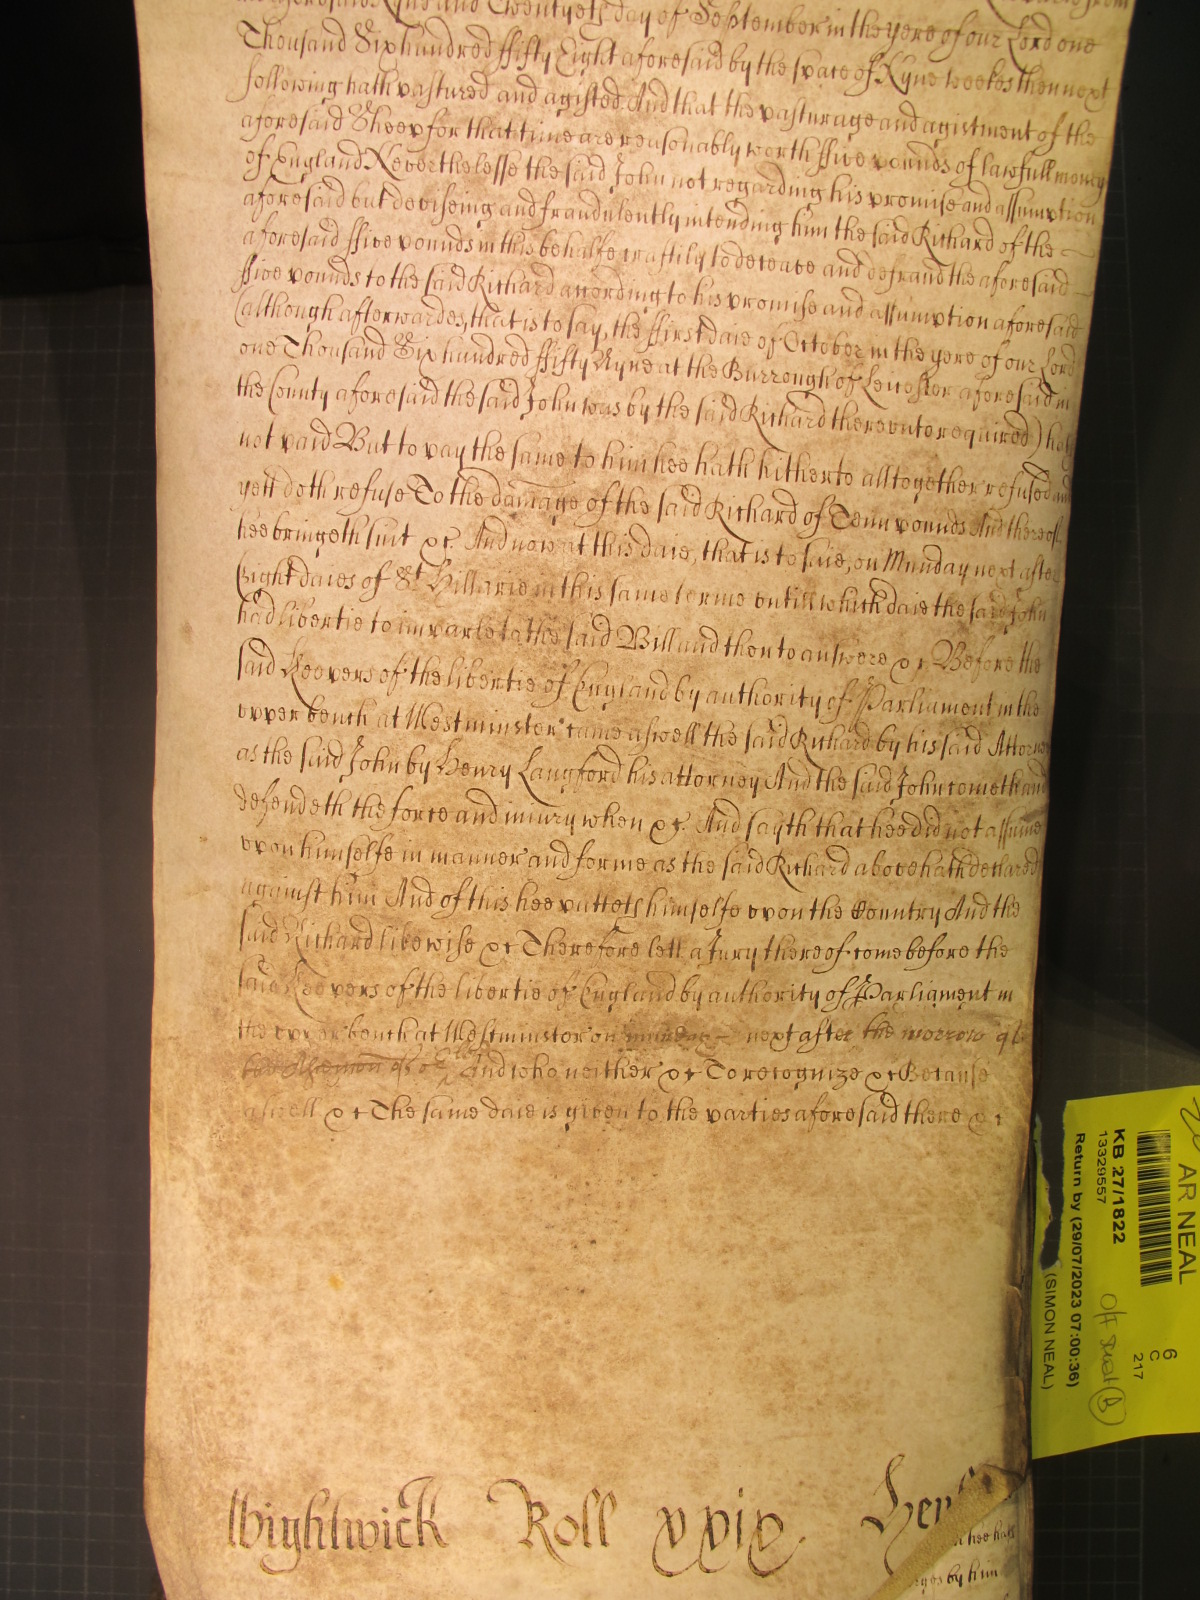 Nyne and Twentyeth day of September in the yere of our Lord one
Thousand Six hundred ffifty Eight aforesaid by the space of Nyne weekes then next
following hath pastured and agisted And that the pasturage and agistment of the
aforesaid Sheep for that time are reasonably worth ffive pounds of lawfull money
of England Neverthelesse the said John not regarding his promise and assumption
aforesaid but deviseing and fraudulently intending him the said Richard of the
aforesaid ffive pounds in this behalfe craftily to deceave and defraud the aforesaid
ffive pounds to the said Richard according to his promise and assumption aforesaid
(although afterwardes, that is to say, the ffirst daie of October in the yere of our Lord
one Thousand Six hundred ffifty Nyne at the Burrough of Leicester aforesaid in
the County aforesaid the said John was by the said Richard thereunto required) hath
not paid But to pay the same to him hee hath hitherto alltogether refused and
yett doth refuse To the damage of the said Richard of Tenn pounds And thereof
hee bringeth suit &c. And now at this daie, that is to saie, on Munday next after
Eight daies of St Hillarie in this same terme untill which daie the said John
had libertie to imparle to the said Bill and then to answere &c Before the
said Keepers of the libertie of England by authority of Parliament in the
upper bench at Westminster came aswell the said Richard by his said Attorney
as the said John by Henry Langford his attorney And the said John cometh and
defendeth the force and injury when &c. And sayth that hee did not assume
upon himselfe in manner and forme as the said Richard above hath declared
against him And of this hee putteth himselfe upon the Country And the
said Richard likewise &c Therefore lett a Jury thereof come before the
said Keepers of the libertie of England by authority of Parliament in
the upper bench at Westminster on next after the morrow of
And who neither &c To recognize &c Because
aswell &c The same daie is given to the parties aforesaid there &c
Wightwick Roll xxix
hee hath
by him
AR NEAL
6
C
217
KB 27/1822
13329557
Return by (29/07/2023 07:00:36)
(SIMON NEAL)
Off
B